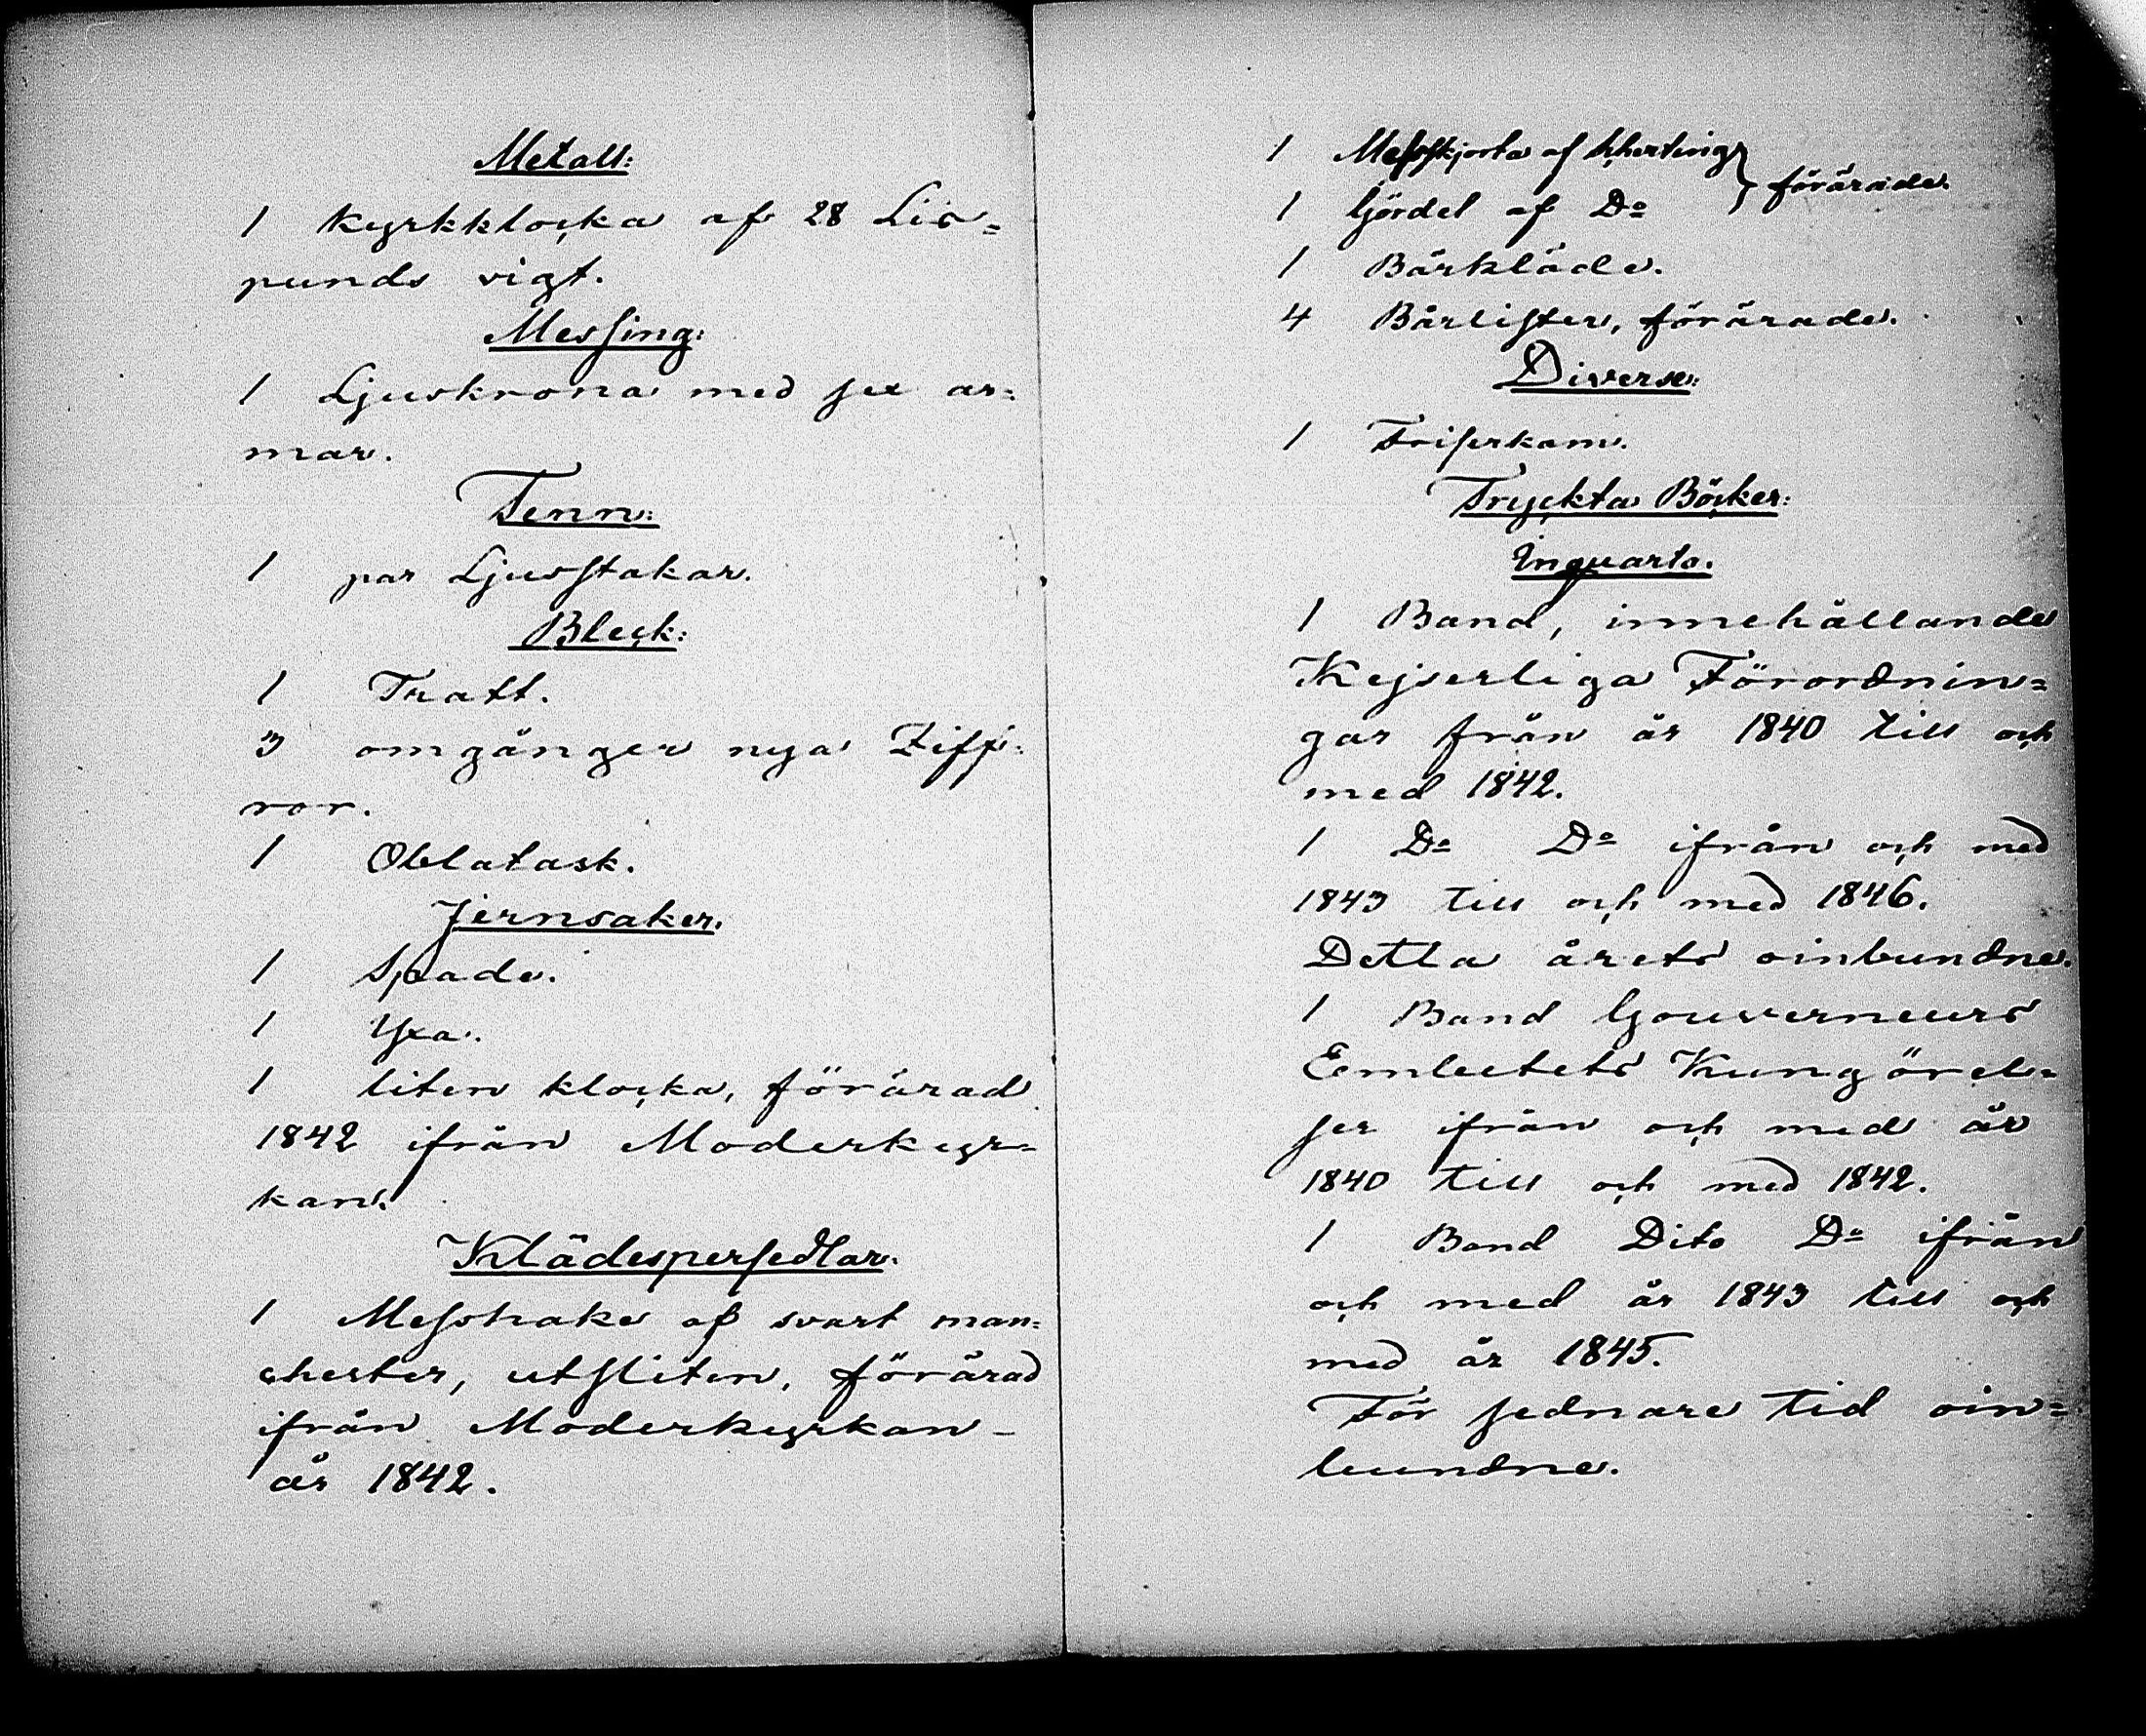 Metall:
1 Kyrkklocka af 28 Lis=
punds vigt.
Messing:
1 Ljuskrona med sex ar=
mar.
Tenn:
1 par Ljusstakar.
Bleck:
1 Tratt.
3 omgånger nya Ziff=
ror.
1 Oblatask.
Jernsaker.
1 Spade.
1 Yxa.
1 liten klocka, förärad
1842 ifrån Moderkyr=
kan.
Klädespersedlar.
1 Messhake af svart man=
chester, utsliten, förärad
ifrån Moderkyrkan
år 1842.
1 Messskjorta af Shertings
1 Gördel af Do } förärade.
1 Bårkläde.
4 Bårlister, förärade.
Diverse:
1 Friserkam.
Tryckta Böcker:
Inquarto.
1 Band, innehållande
Kejserliga Förordnin=
gar från år 1840 till och
med 1842.
1 Do Do ifrån och med
1843 till och med 1846.
Detta årets oinbundne.
1 Band Gouverneurs
Embetets Kungörel=
ser ifrån och med år
1840 till och med 1842.
1 Band Dito Do ifrån
och med år 1843 till och
med år 1845.
För sednare tid oin=
bundne.